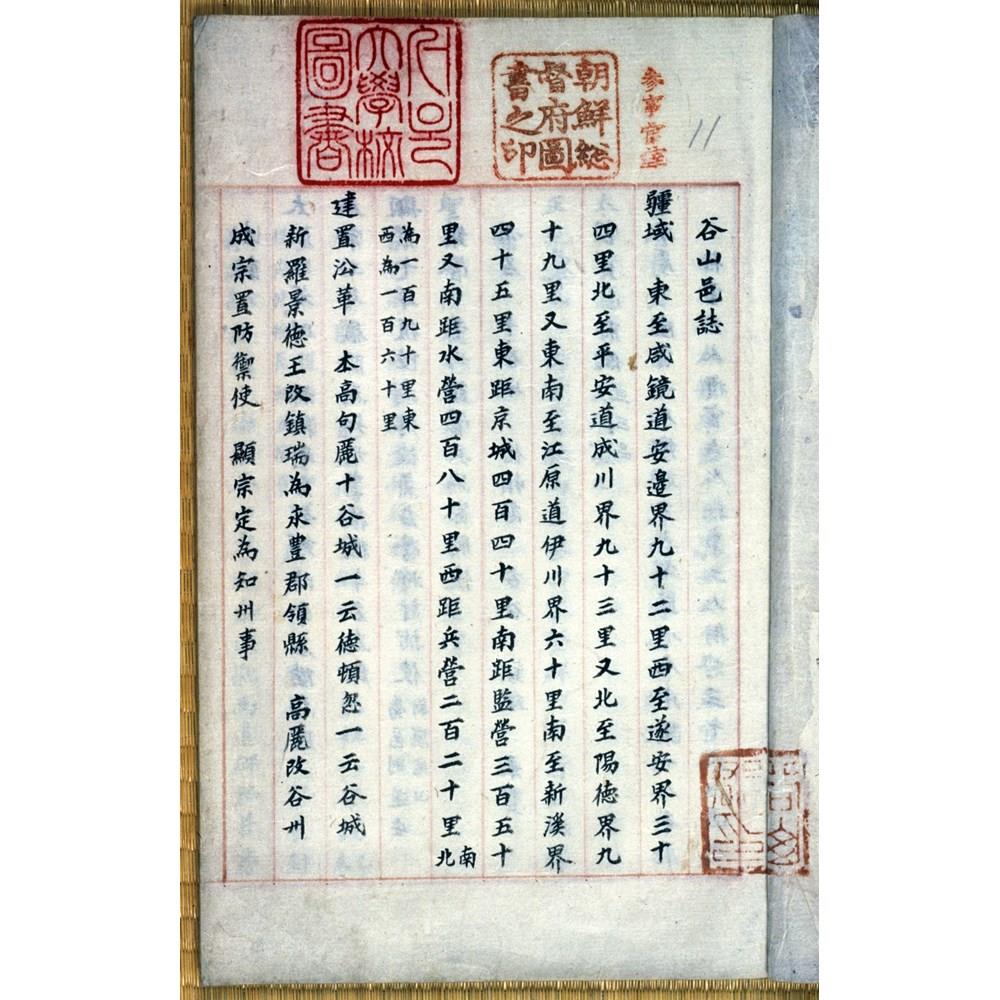 서울
大學校
圖書
朝鮮総
督府圖
書之印
11
谷山邑誌
疆域 東至咸鏡道安邊界九十二里西至遂安界三十
四里北至平安道成川界九十三里又北至陽德界九
十九里又東南至江原道伊川界六十里南至新溪界
四十五里東距京城四百四十里南距監營三百五十
里又南距水營四百八十里西距兵營二百二十里南北
為一百九十里東
西為一百六十里
建置沿革 本高句麗十谷城一云德頓忽一云谷城
新羅景德王改鎮瑞為永豊郡領縣 高麗改谷州
成宗置防禦使 顯宗定為知州事